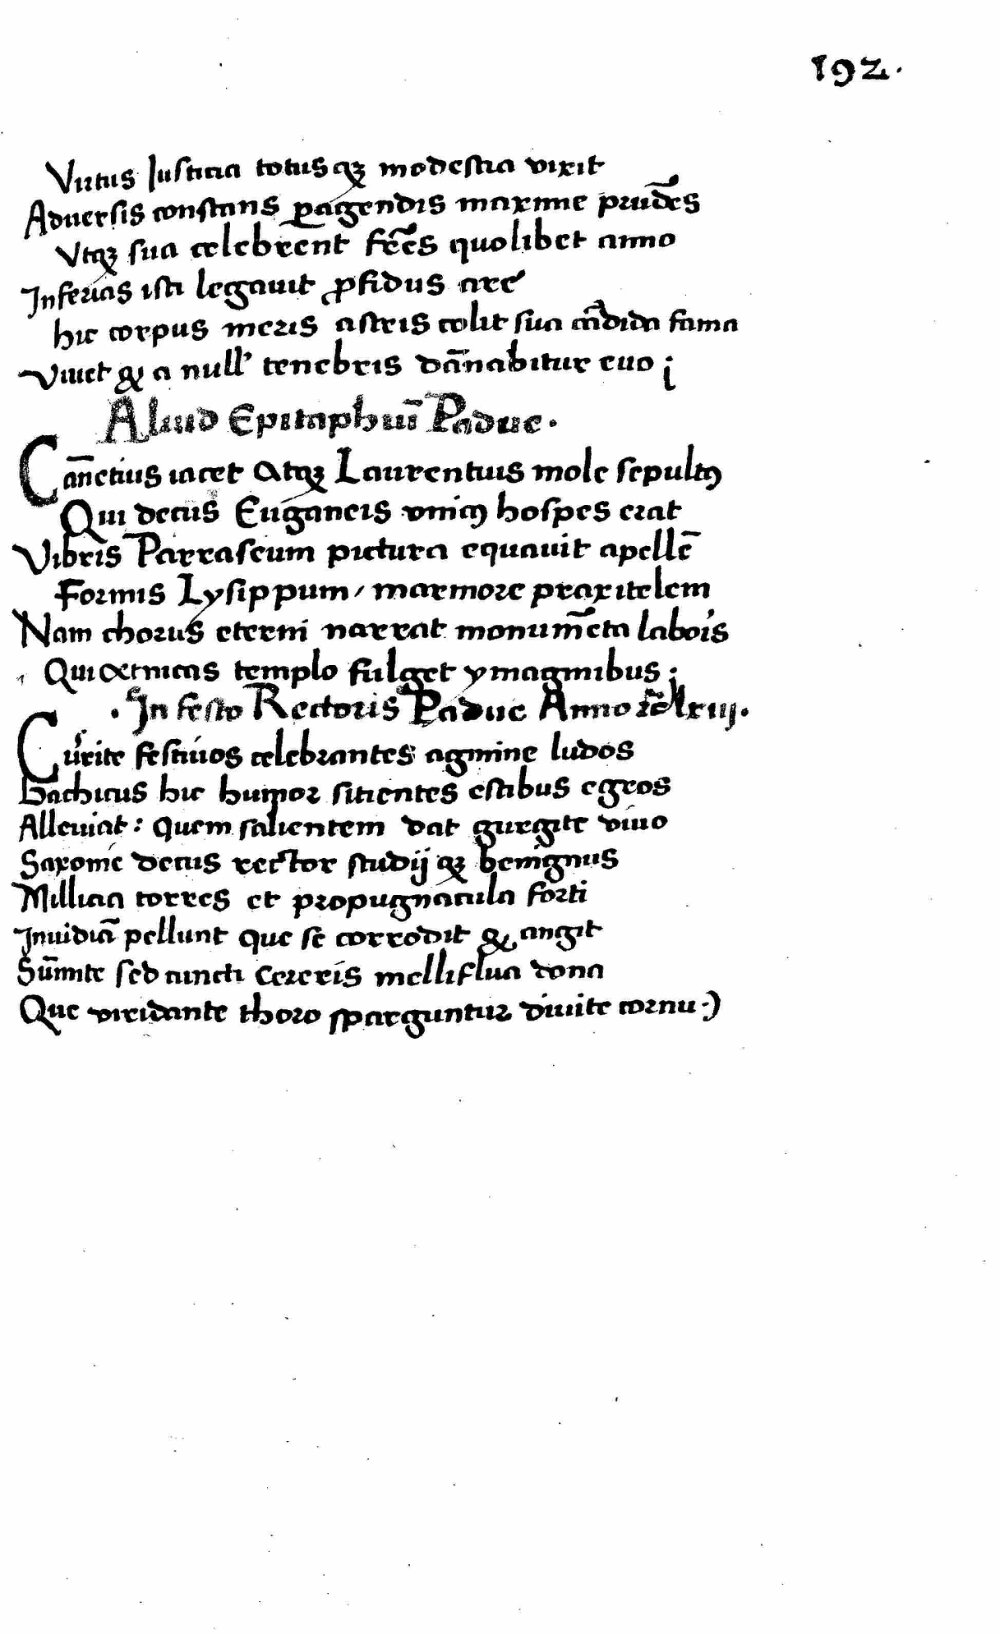 192.
Virtus Iusticia totusqꝫ modestia vixit
Aduersis constans ꝑagendis maxime prudēs
Vtqꝫ sua celebrent fr̄es quolibet anno
Inferias isti legauit ꝓfidus are
hic corpus meris astris colit sua cādida fama
Viuet & a null' tenebris dānabitur euo ;
Aliud Epitaphiū Padue .
Canetius iacet Atqꝫ Laurentius mole sepultꝰ
Qui decus Euganeis vnicꝰ hospes erat
Vibris Parraseum pictura equauit apellē
Formis Lysippum / marmore praxitelem
Nam chorus eterni narrat monumēta labois
Qui cetnicas templo fulget ymaginibus ;
. In festo Rectoris Padue Anno
Currite festiuos celebrantes agmine ludos
Bachicus hic humor sitientes estibus egros
Alleuiat : Quem salientem dat gurgite viuo
Saxonie decus rector studij qꝫ benignus
Millicia torres et propugnacula forti
Inuidiā pellunt que se corrodit & angit
Sūmite sed cuncti Cereris melliflua dona
Que viridante thoro sparguntur diuite cornu :)